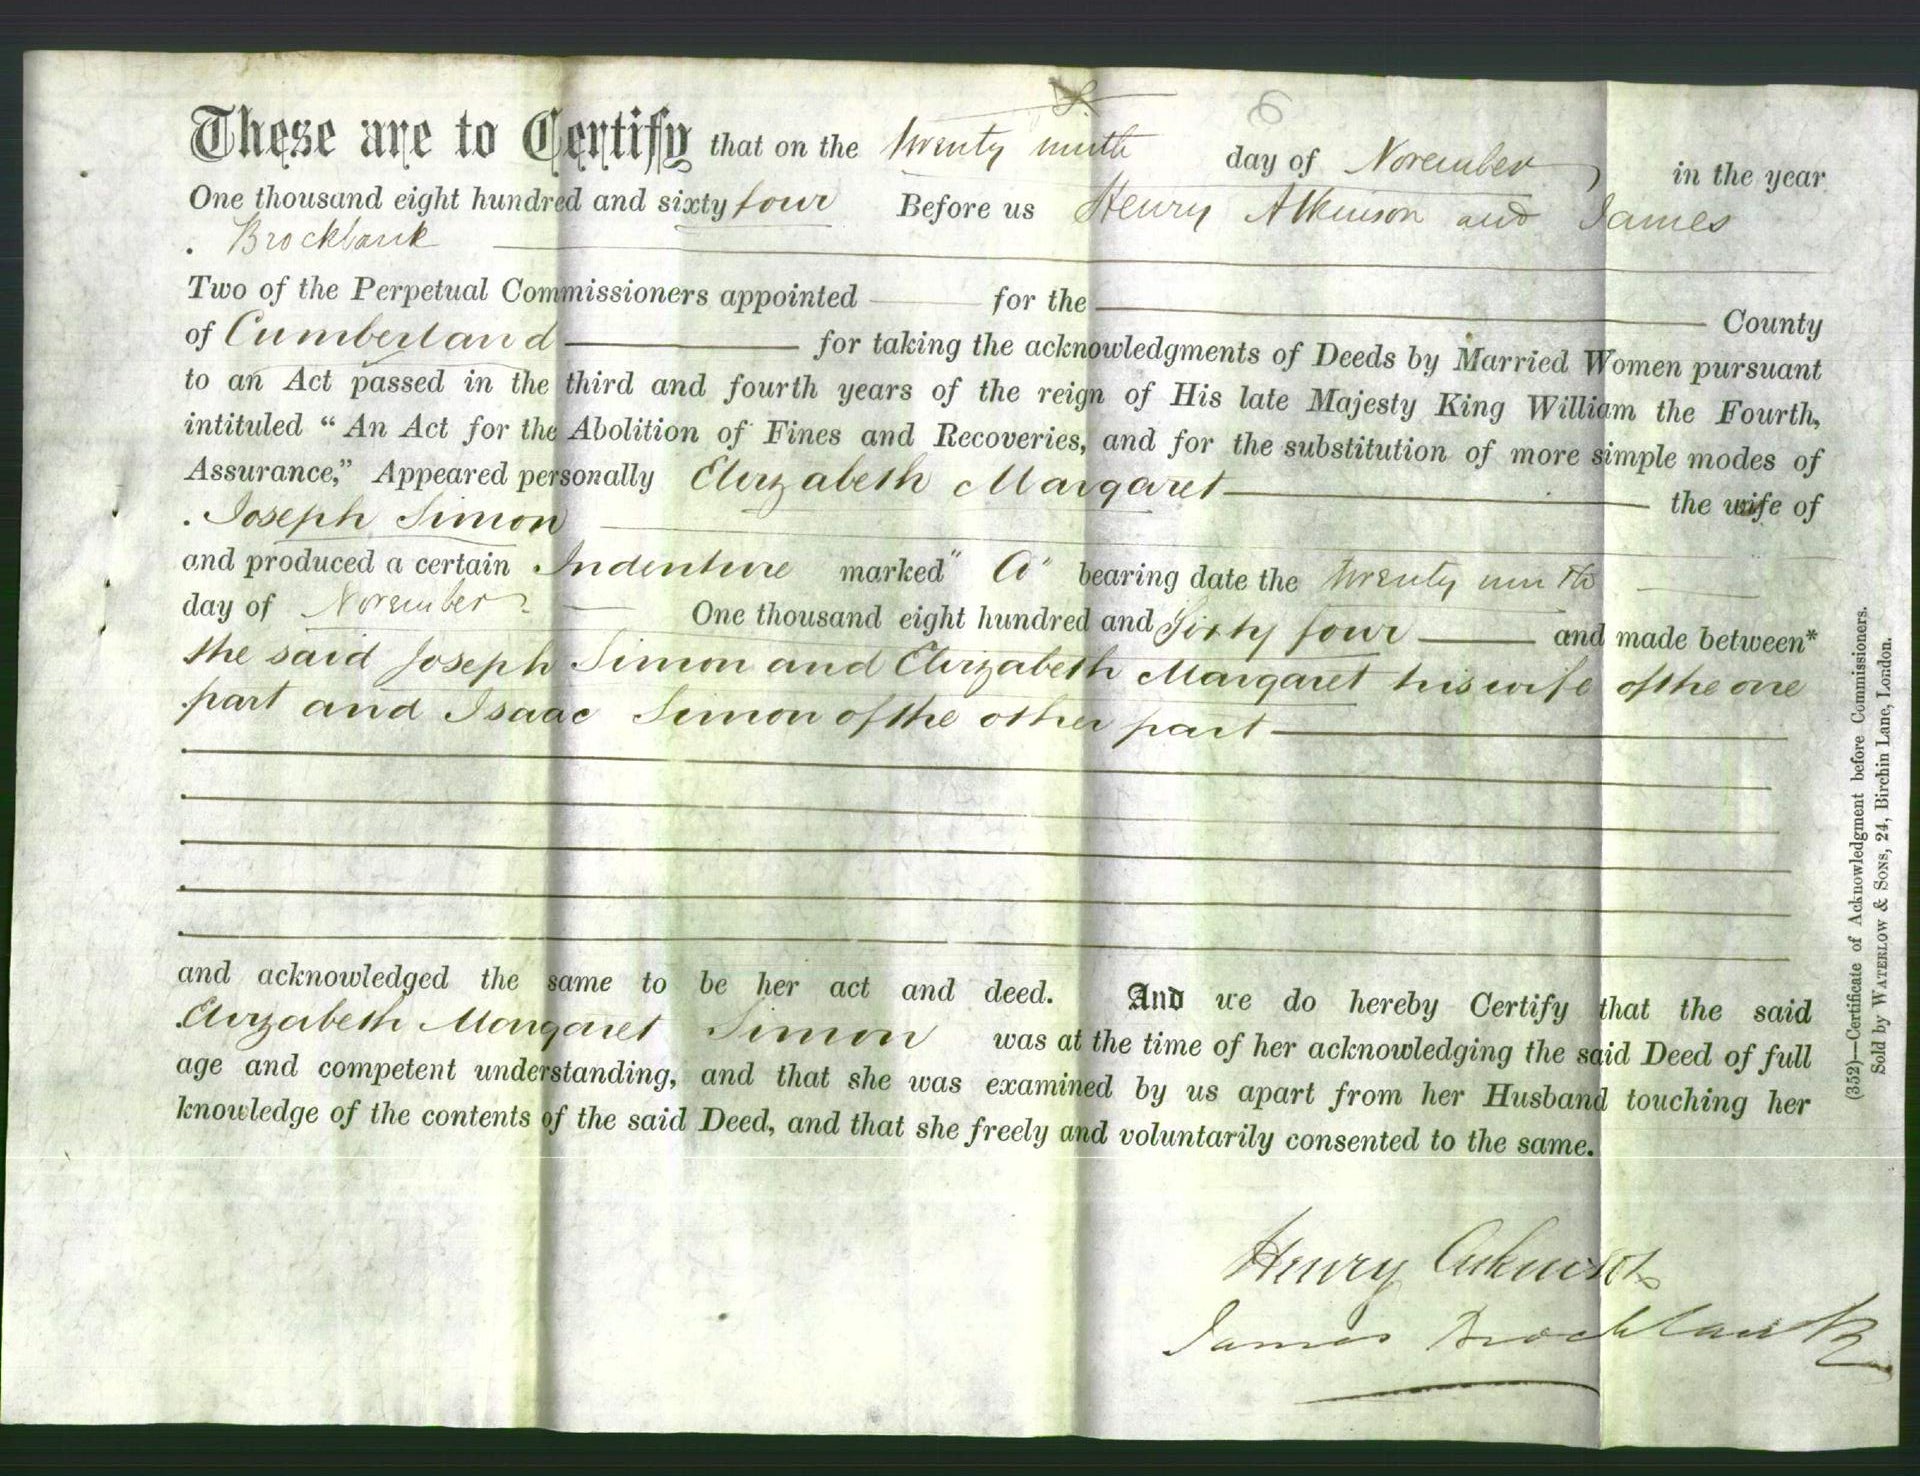 These are to Certify that on the twenty ninth day of November in the year
One thousand eight hundred and sixty four Before us Henry Atkinson and James
Brockbank
Two of the Perpetual Commissioners appointed for the County
of Cumberland for taking the acknowledgments of Deeds by Married Women pursuant
to an Act passed in the third and fourth years of the reign of His late Majesty King William the Fourth,
intituled "An Act for the Abolition of Fines and Recoveries, and for the substitution of more simple modes of
Assurance," Appeared personally Elizabeth Margaret the wife of
Joseph Simon
and produced a certain Indenture marked "A" bearing date the twenty ninth
day of November One thousand eight hundred and Sixty four and made between*
the said Joseph Simon and Elizabeth Margaret his wife of the one
part and Isaac Simon of the other part
and acknowledged the same to be her act and deed. And we do hereby Certify that the said
Elizabeth Margaret Simon was at the time of her acknowledging the said Deed of full
age and competent understanding, and that she was examined by us apart from her Husband touching her
knowledge of the contents of the said Deed, and that she freely and voluntarily consented to the same.
Henry Atkinson
James Brockbank
(352)—Certificate of Acknowledgment before Commissioners.
Sold by WATERLOW & SONS, 24, Birchin Lane, London.